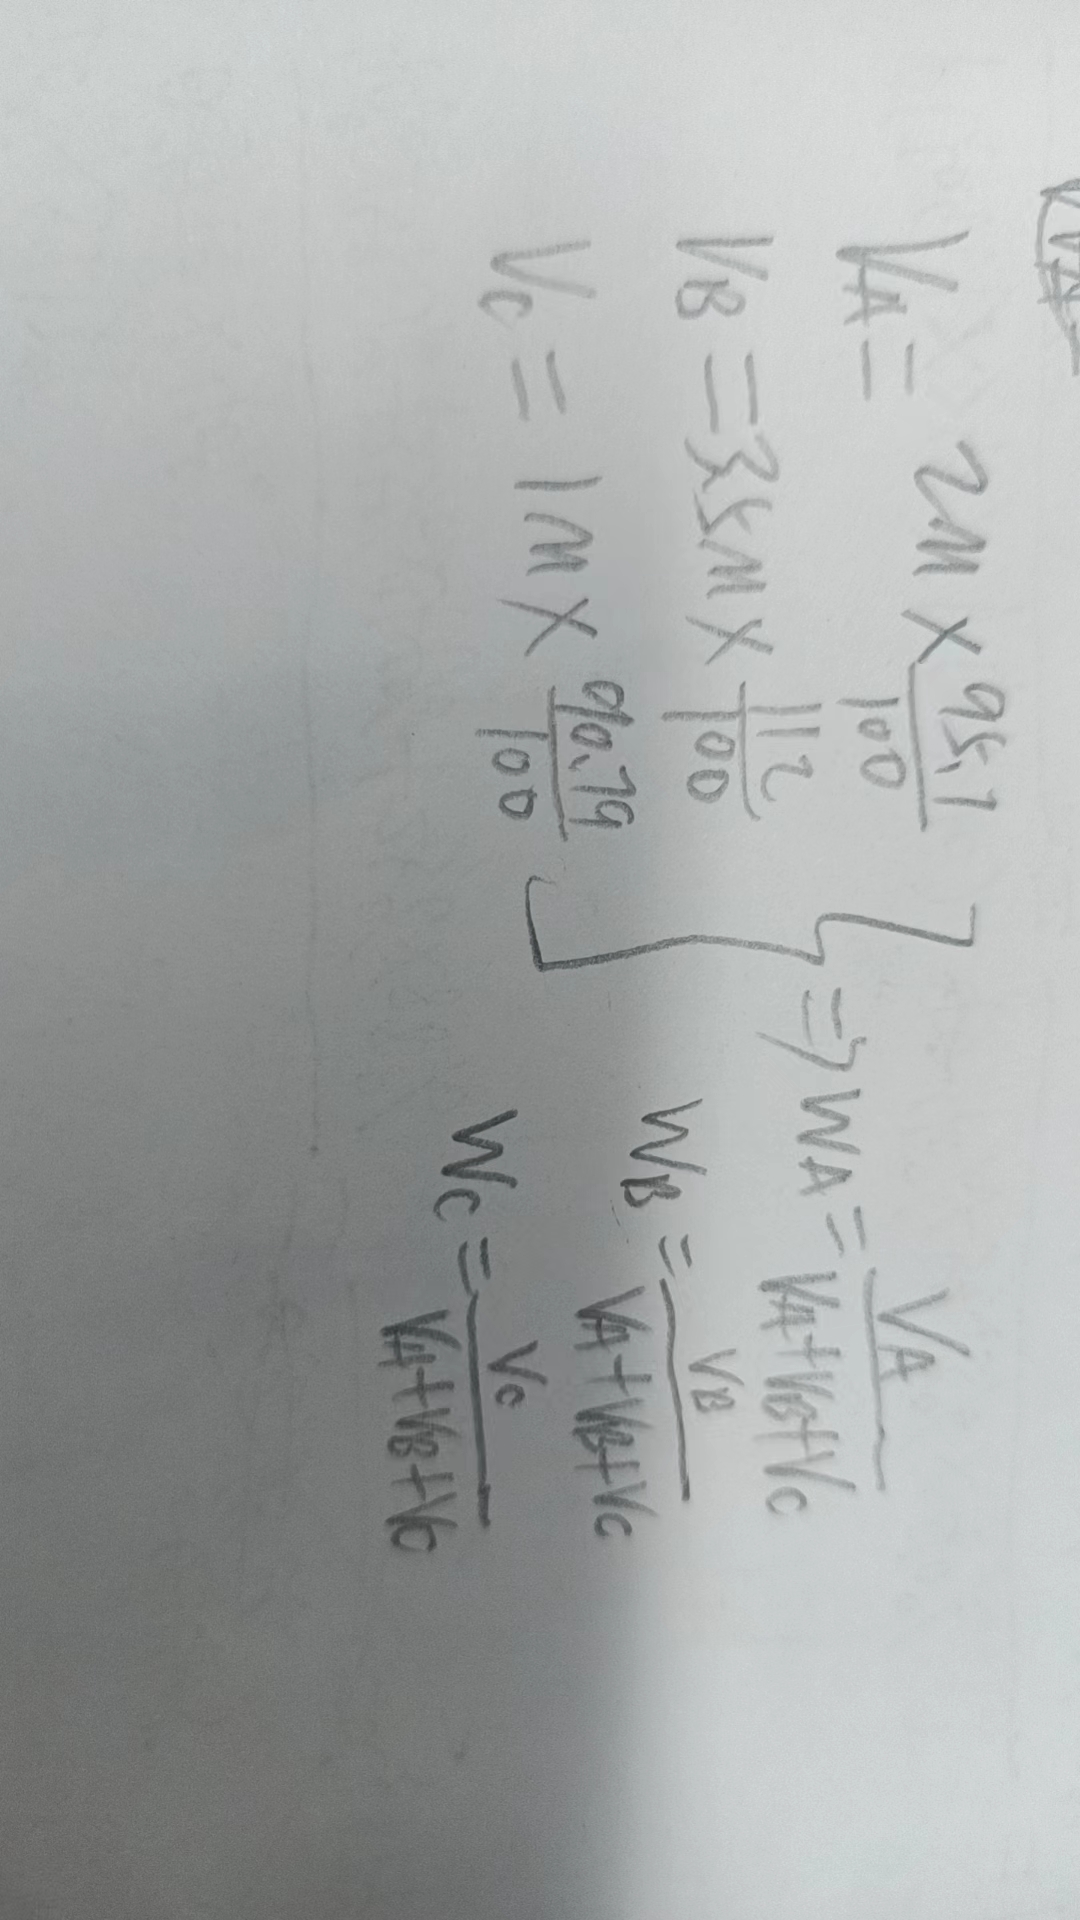 VA = 2M × 95,1/100
VB = 35M × 112/100
VC = 1M × 90,79/100
⇒ WA = VA/(VA+VB+VC)
WB = VB/(VA+VB+VC)
WC = VC/(VA+VB+VC)